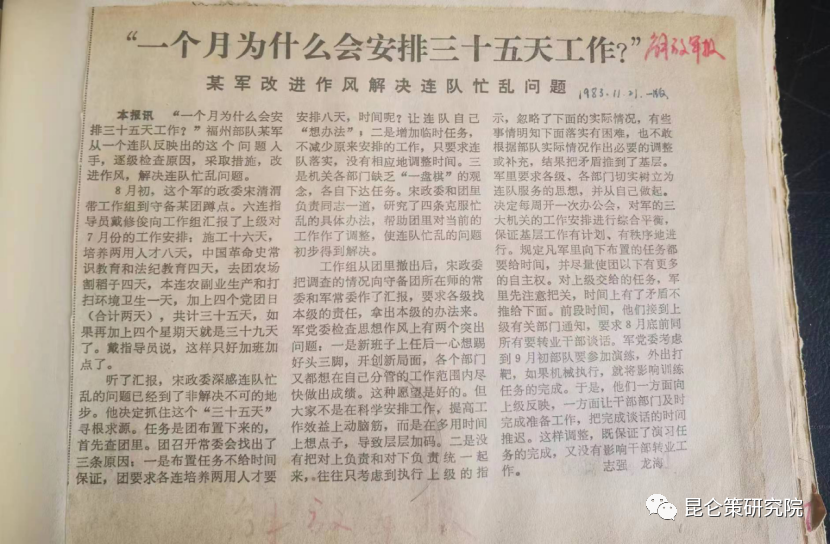 “一个月为什么会安排三十五天工作?”
解放军报
某军改进作风解决连队忙乱问题
1983.11.21.一版
本报讯 “一个月为什么会安
排三十五天工作?”福州部队某军
从一个连队反映出的这个问题入
手,逐级检查原因,采取措施,改
进作风,解决连队忙乱问题。
8月初,这个军的政委宋清渭
带工作组到守备某团蹲点。六连指
导员戴修俊向工作组汇报了上级对
7月份的工作安排:施工十六天,
培养两用人才八天,中国革命史常
识教育和法纪教育四天,去团农场
割稻子四天,本连农副业生产和打
扫环境卫生一天,加上四个党团日
(合计两天),共计三十五天,如
果再加上四个星期天就是三十九天
了。戴指导员说,这样只好加班加
点了。
听了汇报,宋政委深感连队忙
乱的问题已经到了非解决不可的地
步。他决定抓住这个“三十五天”
寻根求源。任务是团布置下来的,
首先查团里。团召开常委会找出了
三条原因:一是布置任务不给时间
保证,团要求各连培养两用人才要
安排八天,时间呢?让连队自己
“想办法”;二是增加临时任务,
不减少原来安排的工作,只要求连
队落实,没有相应地调整时间。三
是机关各部门缺乏“一盘棋”的观
念,各自下达任务。宋政委和团里
负责同志一道,研究了四条克服忙
乱的具体办法,帮助团里对当前的
工作作了调整,使连队忙乱的问题
初步得到解决。
工作组从团里撤出后,宋政委
把调查的情况向守备团所在师的常
委和军常委作了汇报,要求各级找
本级的责任,拿出本级的办法来。
军党委检查思想作风上有两个突出
问题:一是新班子上任后一心想踢
好头三脚,开创新局面,各个部门
又都想在自己分管的工作范围内尽
快做出成绩。这种愿望是好的。但
大家不是在科学安排工作,提高工
作效益上动脑筋,而是在多用时间
上想点子,导致层层加码。二是没
有把对上负责和对下负责统一起
来,往往只考虑到执行上级的指
示,忽略了下面的实际情况,有些
事情明知下面落实有困难,也不敢
根据部队实际情况作出必要的调整
或补充,结果把矛盾推到了基层。
军里要求各级、各部门切实树立为
连队服务的思想,并从自己做起。
决定每周开一次办公会,对军的三
大机关的工作安排进行综合平衡,
保证基层工作有计划、有秩序地进
行。规定凡军里向下布置的任务都
要给时间,并尽量使团以下有更多
的自主权。对上级交给的任务,军
里先注意把关,时间上有了矛盾不
推给下面。前段时间,他们接到上
级有关部门通知,要求8月底前同
所有要转业干部谈话,军党委考虑
到9月初部队要参加演练,外出打
靶,如果机械执行,就将影响训练
任务的完成。于是,他们一方面向
上级反映,一方面让干部部门及时
完成准备工作,把完成谈话的时间
推迟。这样调整,既保证了演习任
务的完成,又没有影响干部转业工
作。
志强 龙海
昆仑策研究院